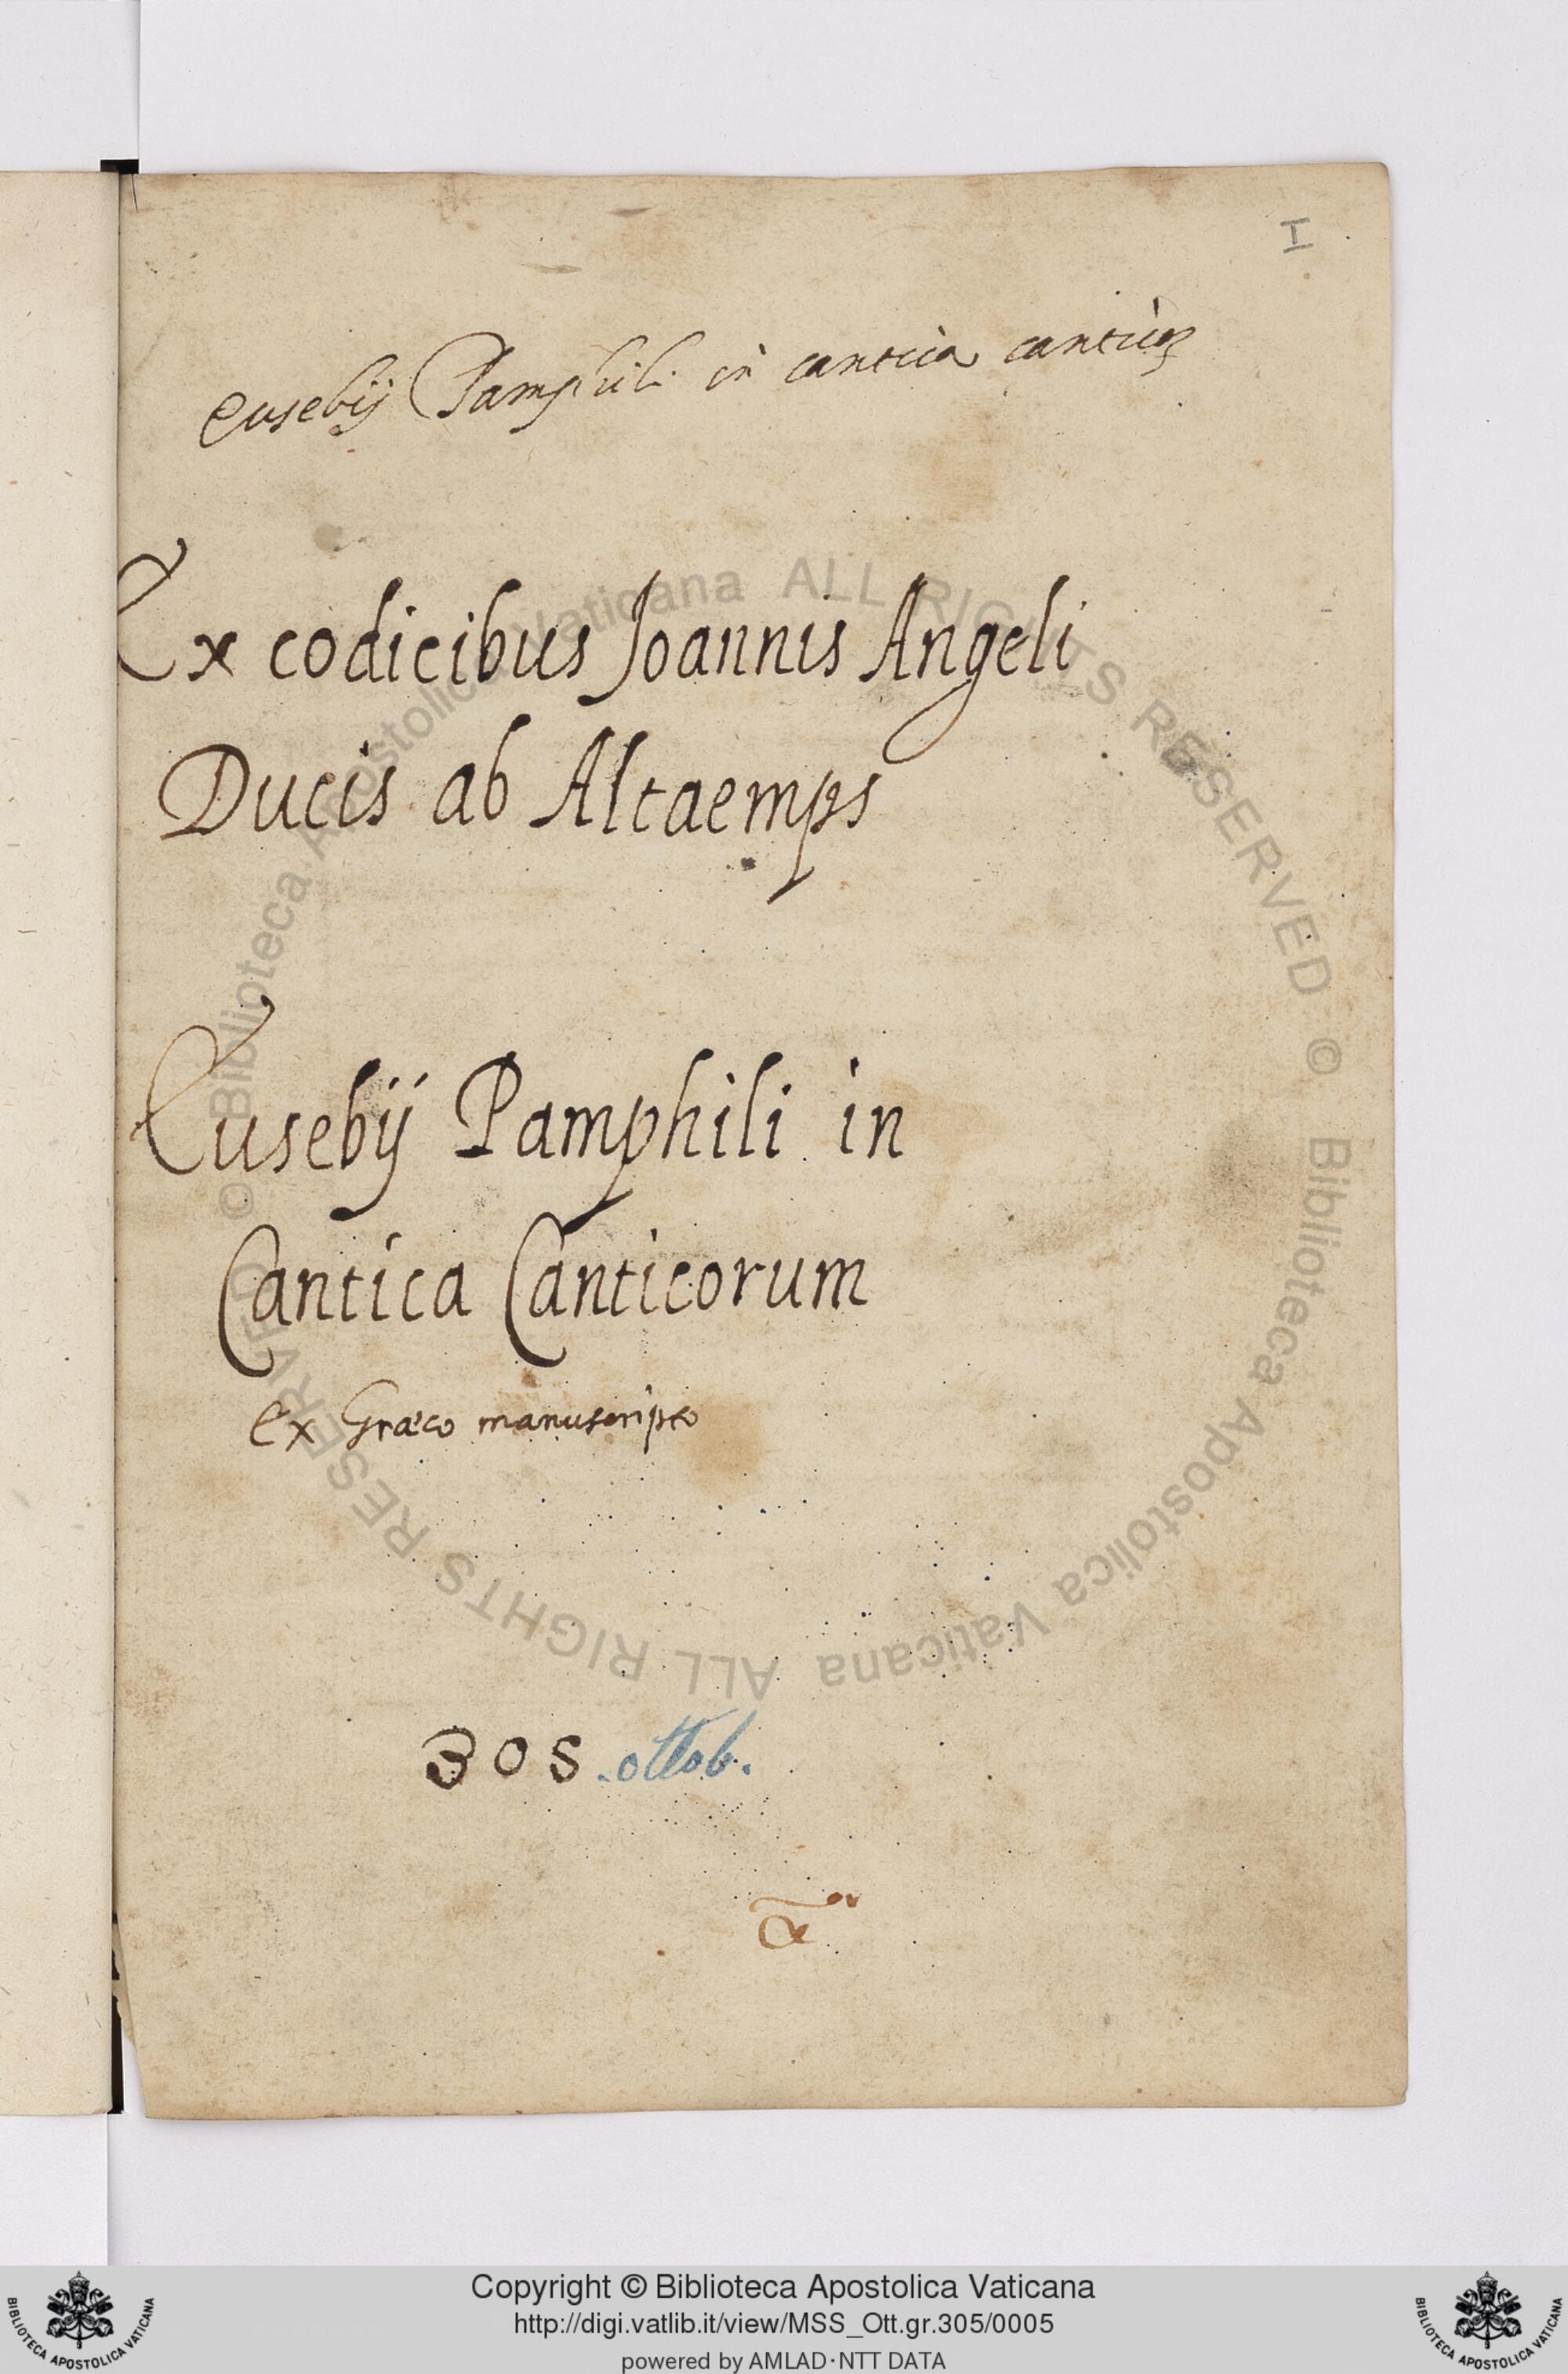 I
Eusebij Pamphili in cantica canticoꝝ
Ex codicibus Joannis Angeli
Ducis ab Altaemps
Eusebij Pamphili in
Cantica Canticorum
Ex Græco manuscripto
305 .ottob.
© Biblioteca Apostolica Vaticana ALL RIGHTS RESERVED © Biblioteca Apostolica Vaticana ALL RIGHTS RESERVED
Copyright © Biblioteca Apostolica Vaticana
http://digi.vatlib.it/view/MSS_Ott.gr.305/0005
powered by AMLAD·NTT DATA
BIBLIOTECA APOSTOLICA VATICANA
BIBLIOTECA APOSTOLICA VATICANA